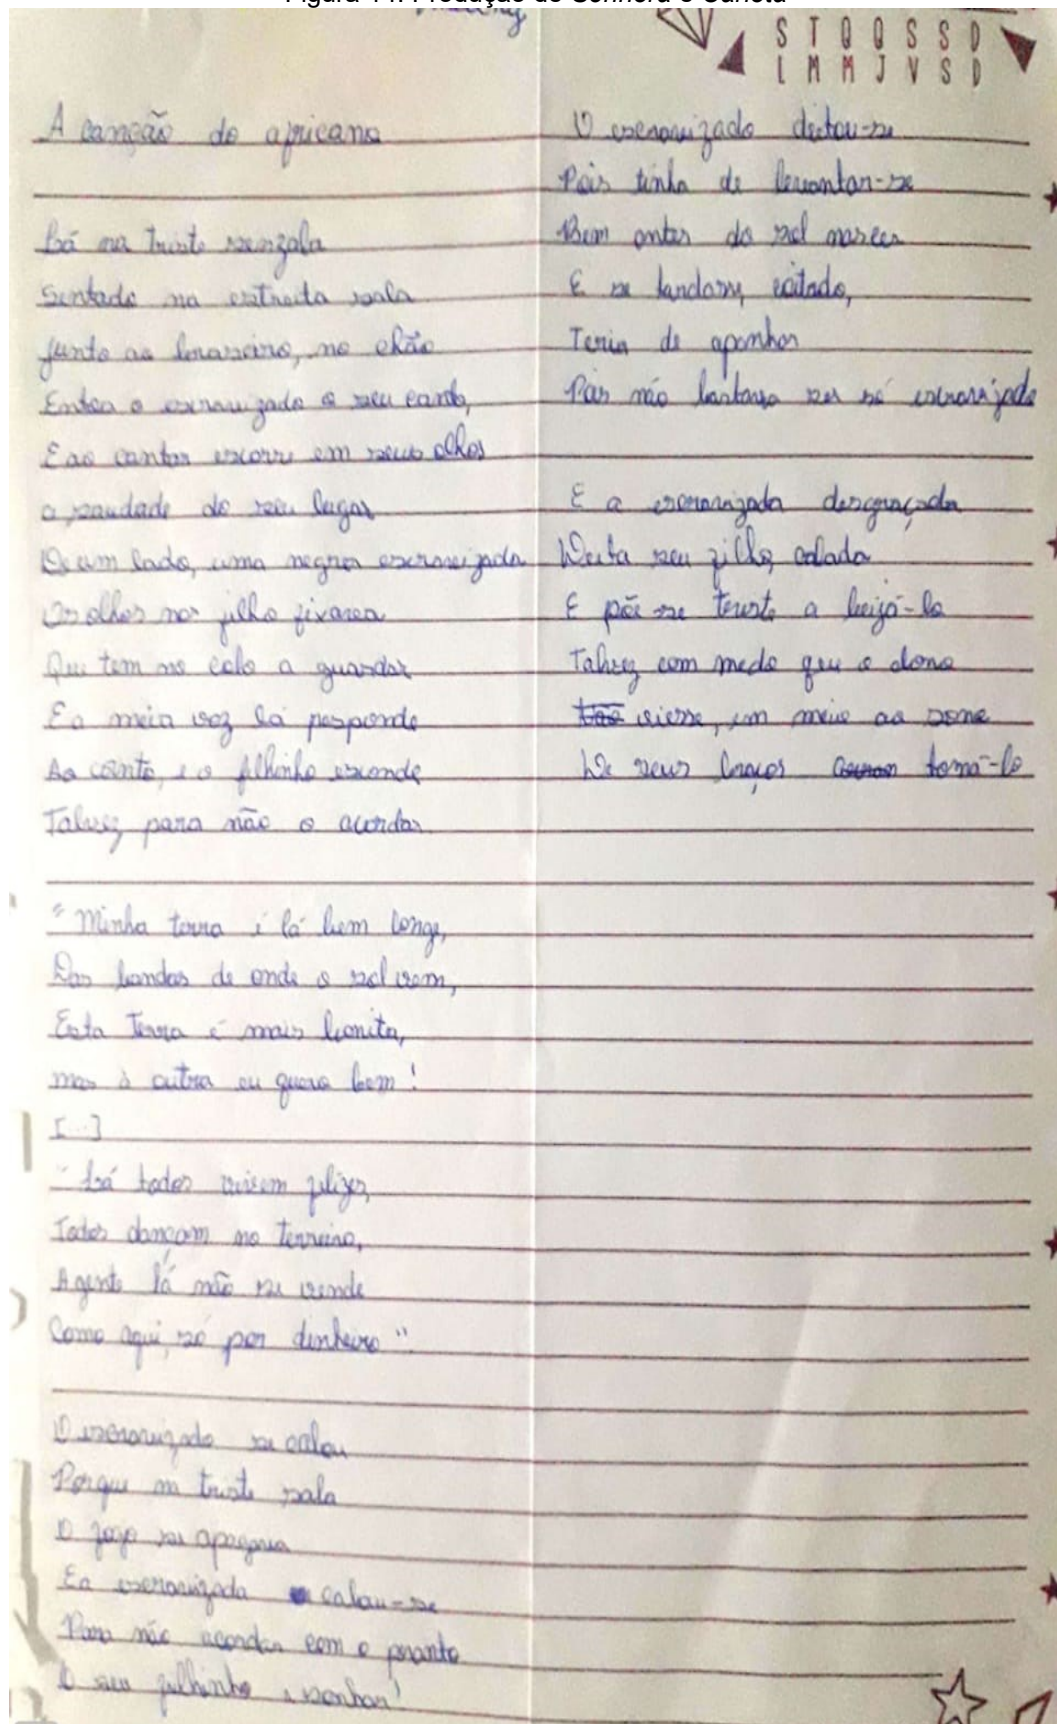 Figura 44: Produção de Senhora e Carlota
S T Q Q S S D
L M M J V S D
A canção do africano
Lá na triste senzala
Sentado na estreita sala
Junto ao braseiro, no chão
Entoa o escravizado o seu canto,
E ao cantar escorre em seus olhos
a saudade do seu lugar
De um lado, uma negra escravizada
Os olhos no filho fixava
Que tem no colo a guardar
E a meia voz lá responde
Ao canto, e o filhinho esconde
Talvez para não o acordar
"Minha terra é lá bem longe,
Das bandas de onde o sol vem,
Esta Terra é mais bonita,
mas à outra eu quero bem!
[...]
"Lá todos vivem felizes,
Todos dançam no terreiro,
A gente lá não se vende
Como aqui, só por dinheiro"
O escravizado se calou
Porque na triste sala
O fogo se apagava
E a escravizada calou-se
Para não acordar com o pranto
O seu filhinho a sonhar!
O escravizado deitou-se
Pois tinha de levantar-se
Bem antes do sol nascer
E se tardasse, coitado,
Teria de apanhar
Pois não bastava ser só escravizado
E a escravizada desgraçada
Deita seu filho, calada
E põe-se triste a beijá-lo
Talvez com medo que o dono
viesse, em meio ao sono
De seus braços tomá-lo